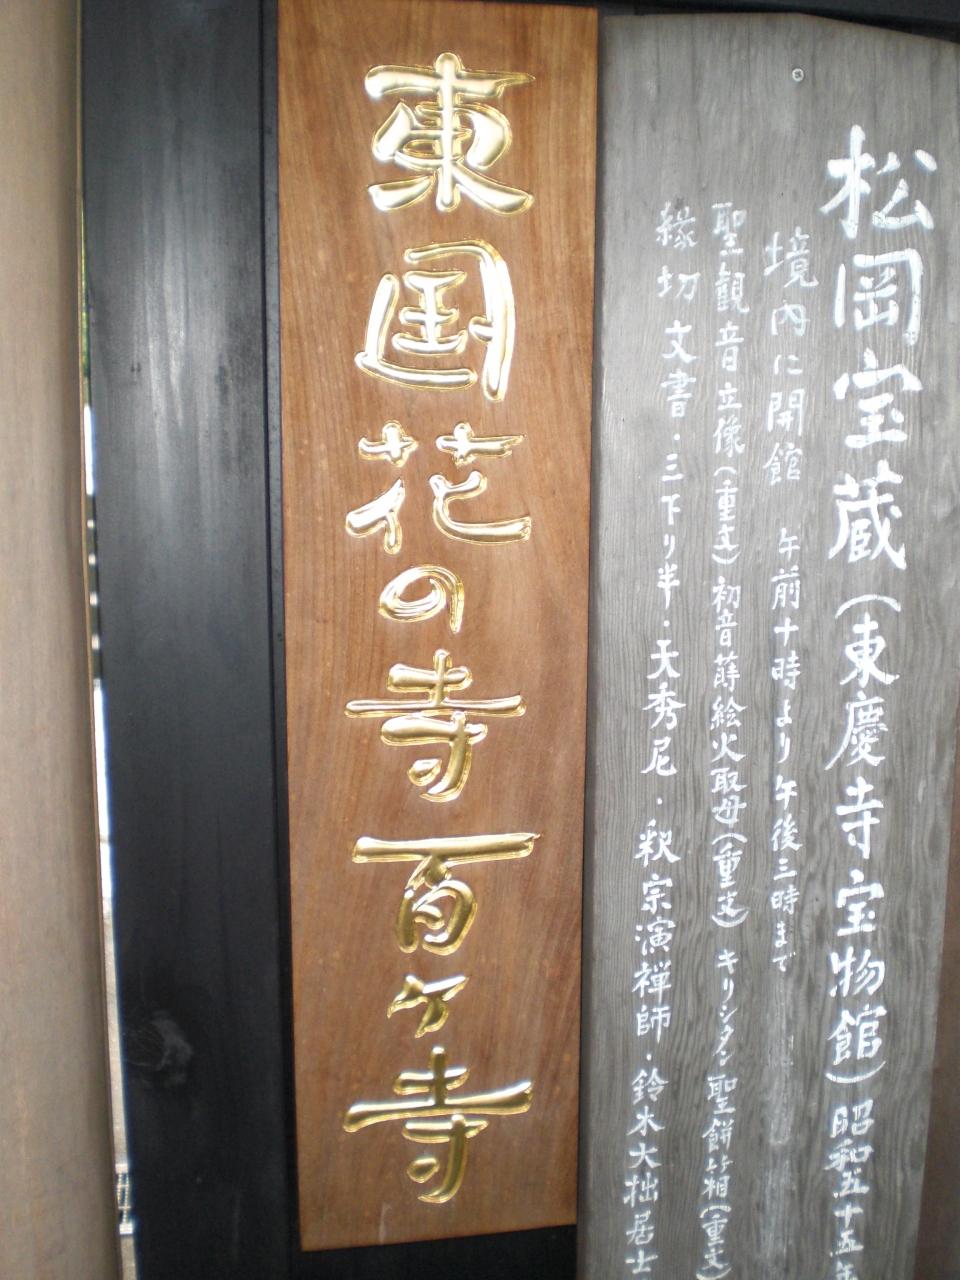 松岡宝蔵（東慶寺宝物館）昭和五十五年
境内に開館 午前十時より午後三時まで
聖観音立像（重文）初音蒔絵火取母（重文）キリシタン聖餅箱（重文）
縁切文書・三下り半・天秀尼・釈宗演禅師・鈴木大拙居士
東国花の寺百ヶ寺